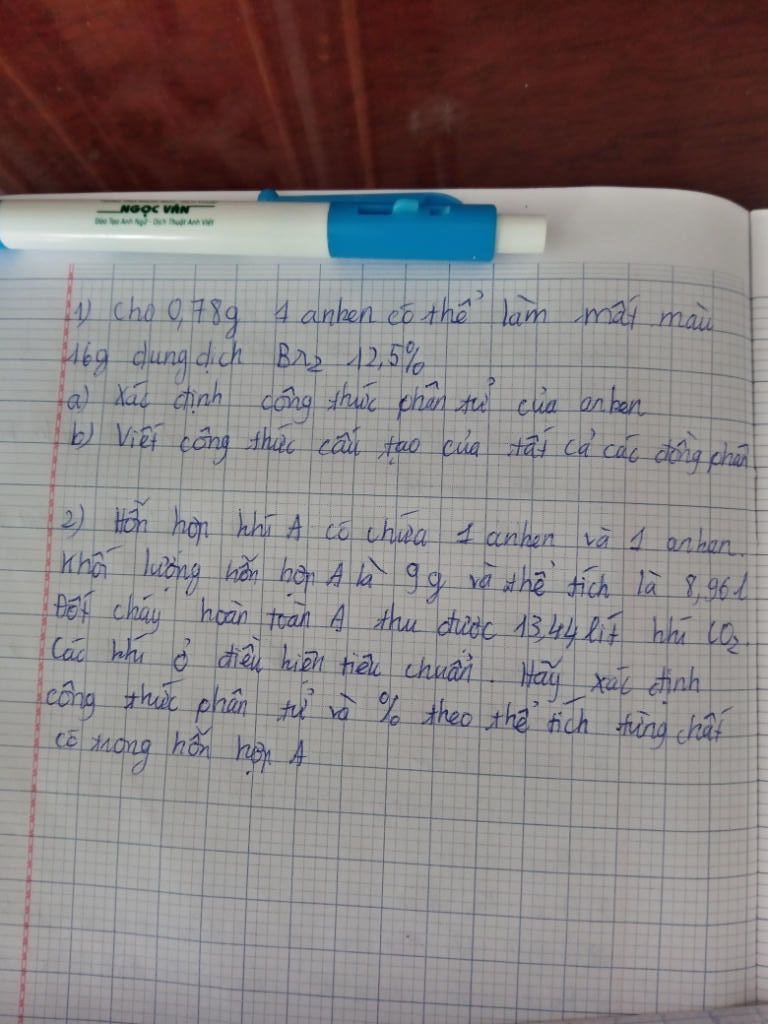 NGỌC VÂN
Đào Tạo Anh Ngữ - Dịch Thuật Anh Việt
1) Cho 0,78g 1 anken có thể làm mất màu
16g dung dịch Br2 12,5%
a) Xác định công thức phân tử của anken
b) Viết công thức cấu tạo của tất cả các đồng phân
2) Hỗn hợp khí A có chứa 1 ankan và 1 anken.
Khối lượng hỗn hợp A là 9g và thể tích là 8,96l
Đốt cháy hoàn toàn A thu được 13,44 lít khí CO2.
Các khí ở điều kiện tiêu chuẩn. Hãy xác định
công thức phân tử và % theo thể tích từng chất
có trong hỗn hợp A